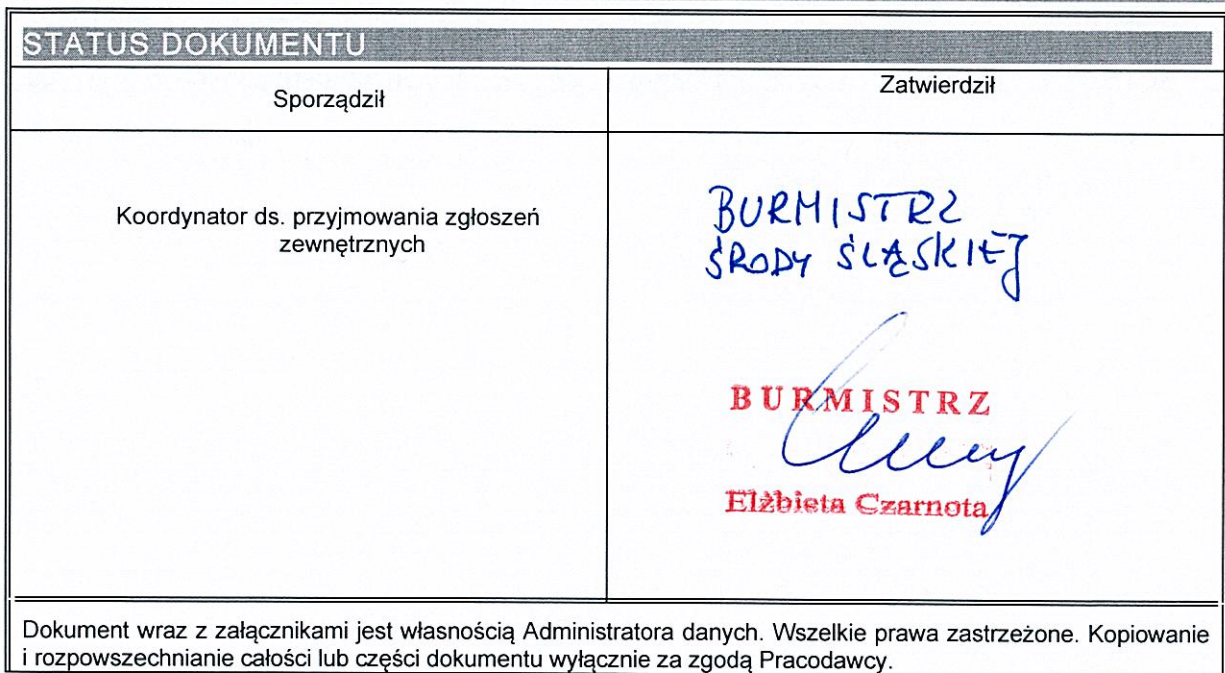 STATUS DOKUMENTU
Sporządził
Zatwierdził
Koordynator ds. przyjmowania zgłoszeń
zewnętrznych
BURMISTRZ
ŚRODY ŚLĄSKIEJ
BURMISTRZ
Elżbieta Czarnota
Dokument wraz z załącznikami jest własnością Administratora danych. Wszelkie prawa zastrzeżone. Kopiowanie
i rozpowszechnianie całości lub części dokumentu wyłącznie za zgodą Pracodawcy.